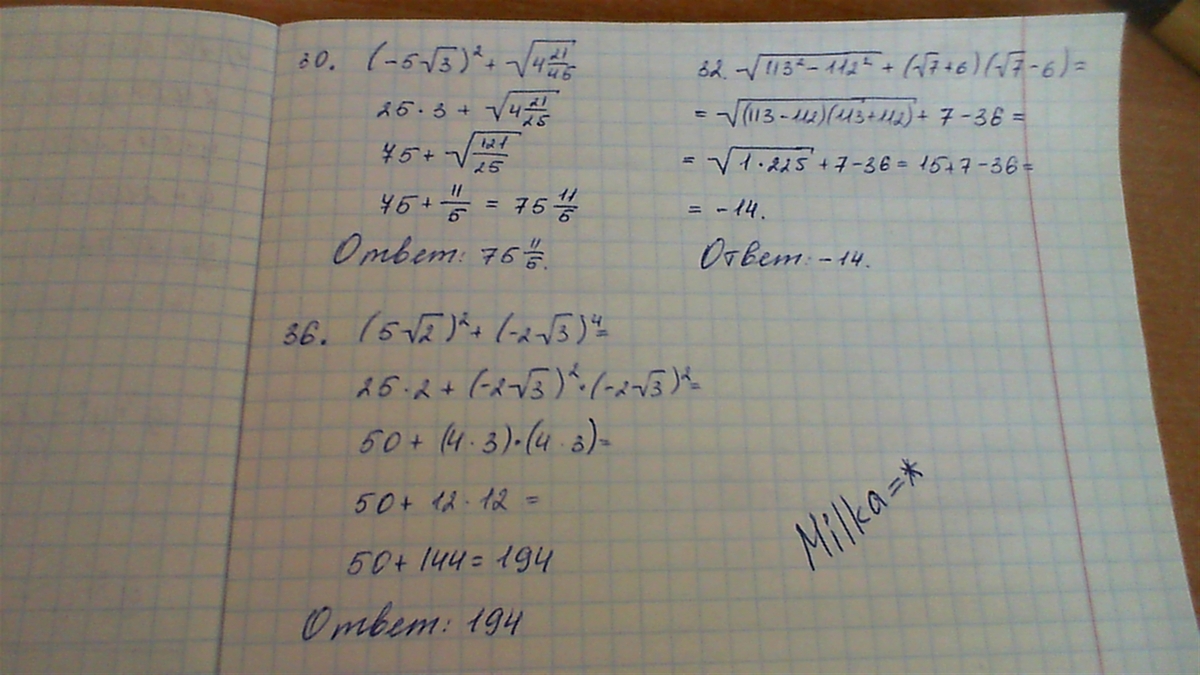 30. (-5√3)² + √4 21/45
25·3 + √4 21/25
75 + √121/25
75 + 11/5 = 75 11/5
Ответ: 75 11/5.
32. √113² - 112² + (√7+6)(√7-6) =
= √(113-112)(113+112) + 7 - 36 =
= √1·225 + 7 - 36 = 15+7-36 =
= -14.
Ответ: -14.
36. (5√2)² + (-2√3)⁴ =
25·2 + (-2√3)²·(-2√3)² =
50 + (4·3)·(4·3) =
50 + 12·12 =
50 + 144 = 194
Ответ: 194
Milka=*